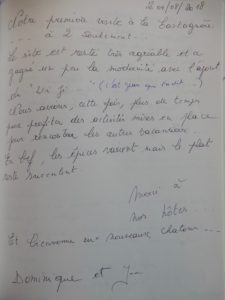 Le 04/08/2018
Notre première visite à la Castagnère
.... à 2 seulement ...
Le site est resté très agréable et a
gagné un peu la modernité avec l'ajout
du
Nous avions, cette fois, plus de temps
pour profiter des activités mises en place
pour rencontrer les autres vacanciers.
En bref, les épices varient mais le plat
reste succulent.
Merci à
nos hôtes ....
Et bienvenue aux nouveaux chatons ...
Dominique et